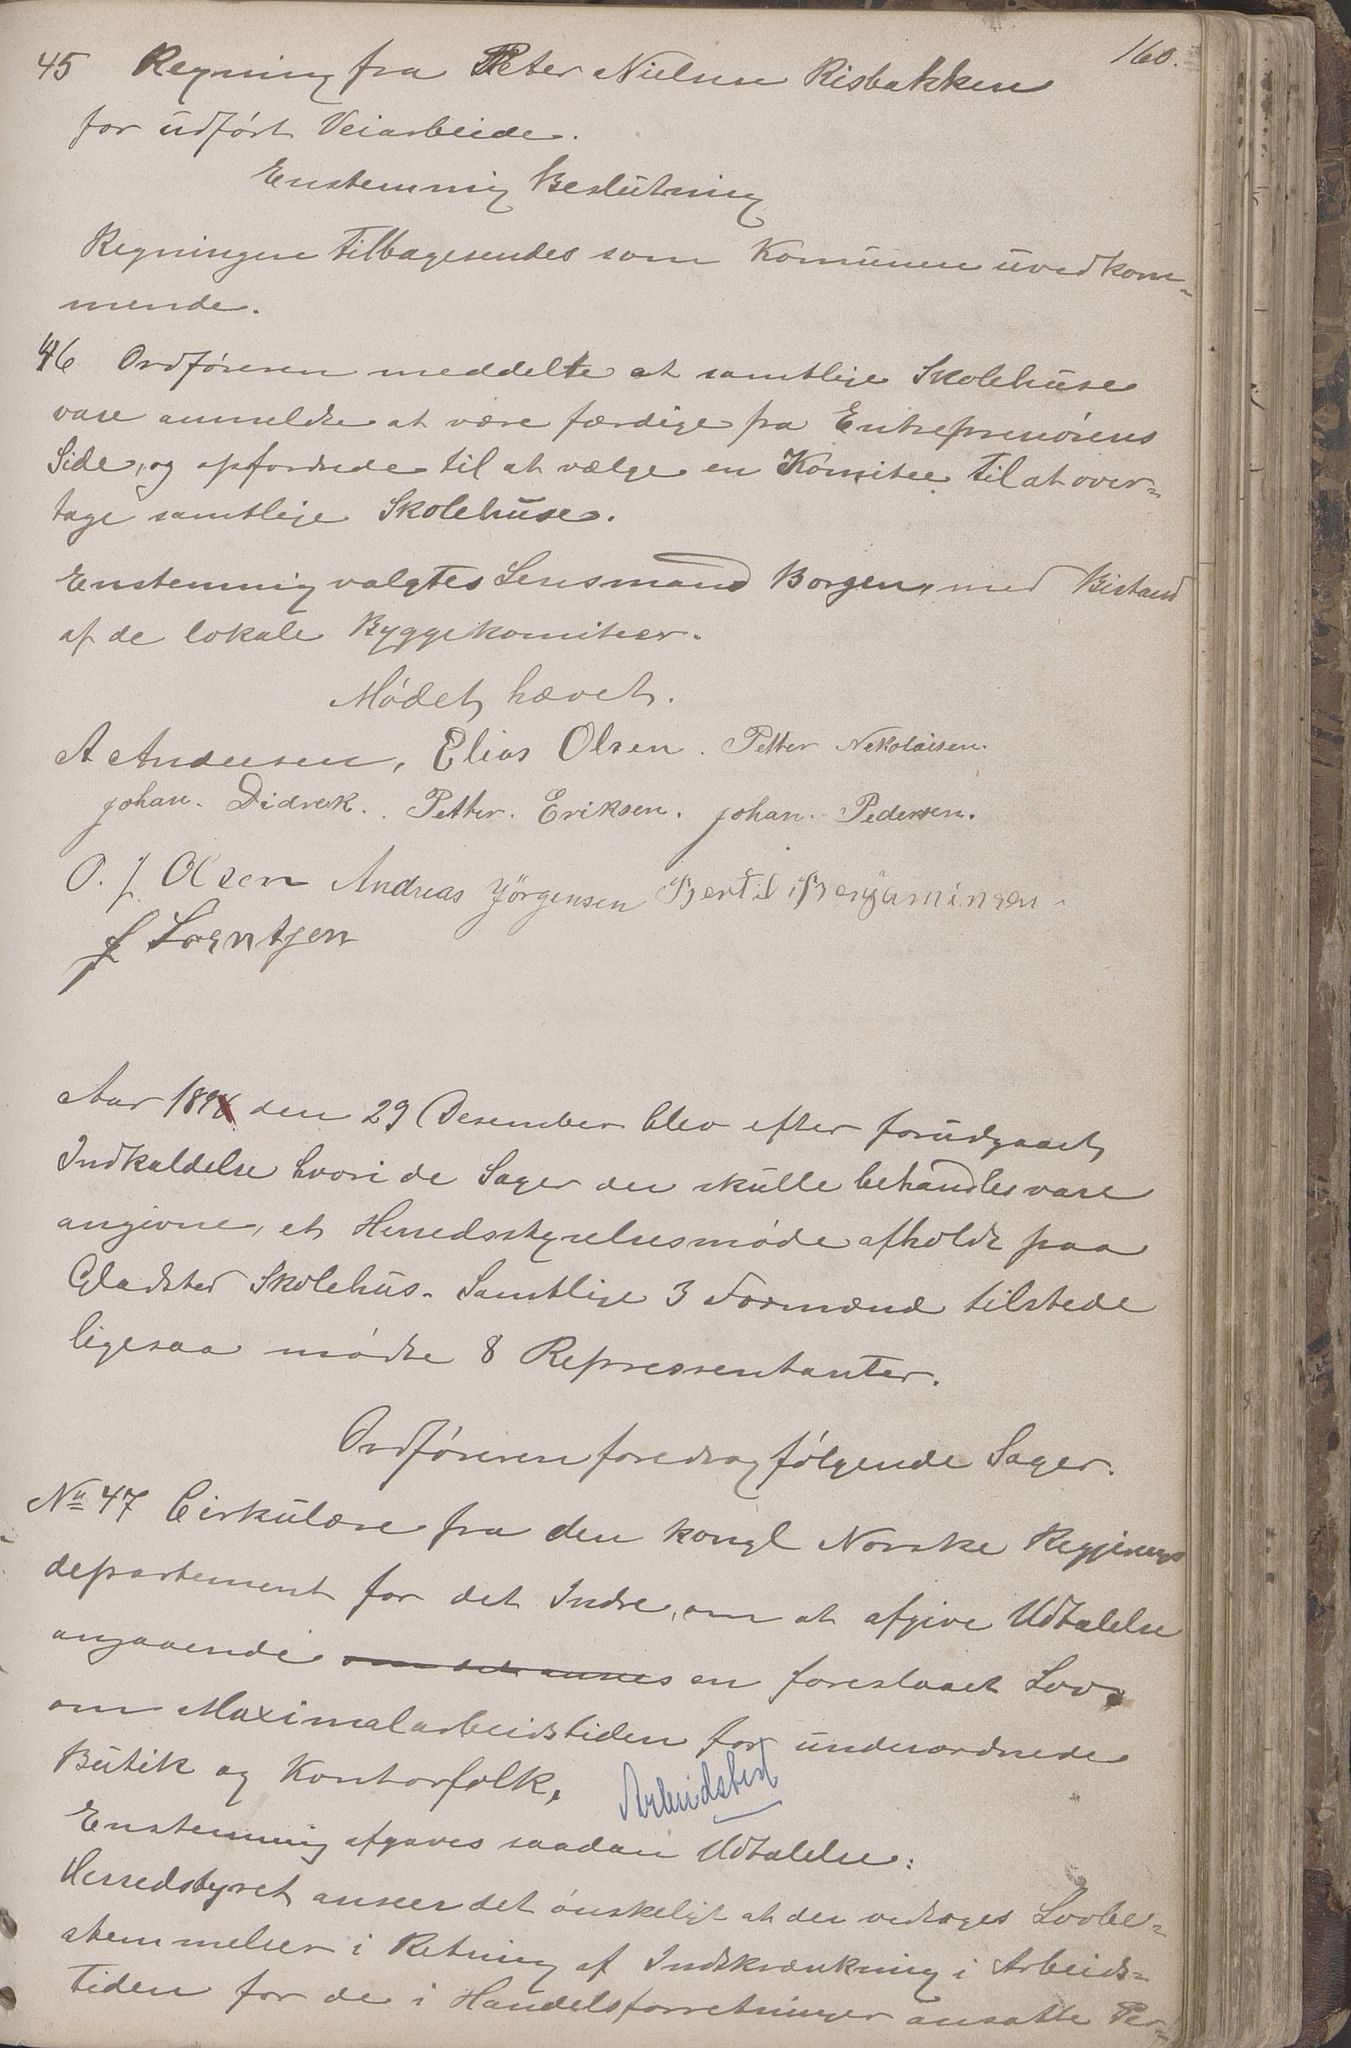 160.
45 Regning fra Peter Nielsen Risbakken
for udført Veiarbeide.
Enstemmig Beslutning
Regningen tilbagesendes som Komunen uvedkom-
mende.
46 Ordføreren meddelte at samtlige Skolehuse
vare anmeldte at være færdige fra Entreprenørens
Side, og opfordrede til at vælge en Komitee til at over-
tage samtlige Skolehuse.
Enstemmig valgtes Lensmand Borgen, med Bistand
af de lokale Byggekomiteer.
Mødet hævet.
A Andersen, Elias Olsen. Petter Nekolaisen.
Johan. Didrek. Petter. Eriksen. Johan. Pedersen.
O. J. Olsen Andreas Jörgensen Bertil Benjaminsen
J Lorntsen
Aar 189 den 29 Desember blev efter forudgaaet
Indkaldelse hvori de Sager der skulle behandles vare
angivne, et Herredsstyrelsesmøde afholdt paa
Gladsted Skolehus. Samtlige 3 Formænd tilstede
ligesaa mødte 8 Repressentanter.
Ordføreren foredrog følgende Sager.
No 47 Cirkulære fra den kongl Norske Regjerings
departement for det Indre, om at afgive Udtalelse
angaaende en foreslaaet Lov
om Maximalarbeidstiden for underordnede
Butik og Kontorfolk,
Enstemmig afgaves saadan Udtalelse:
Herredstyret anseer det ønskeligt at der vedtages Lovbe-
stemmelser i Retning af Indskrænkning i Arbeids-
tiden for de i Handelsforretninger ansatte Per-